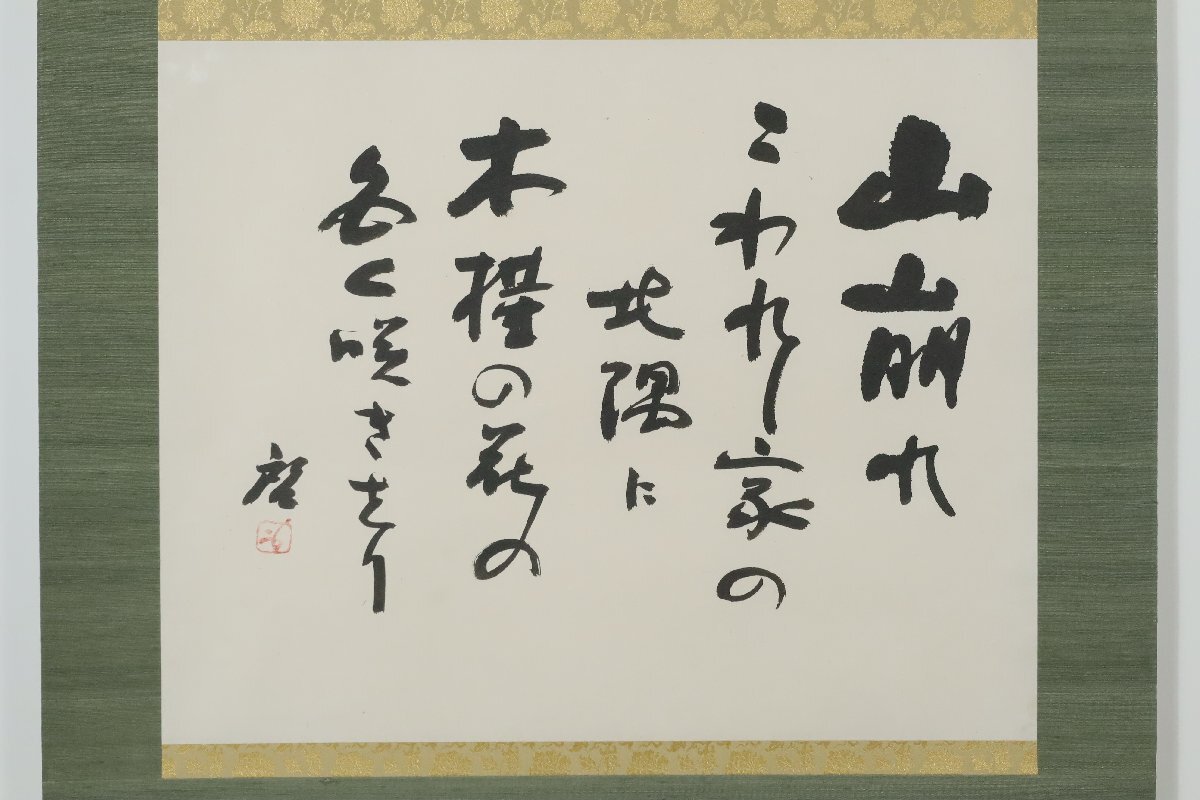 山崩れ
こわれし家の
北隅に
木槿の花の
く咲きをり